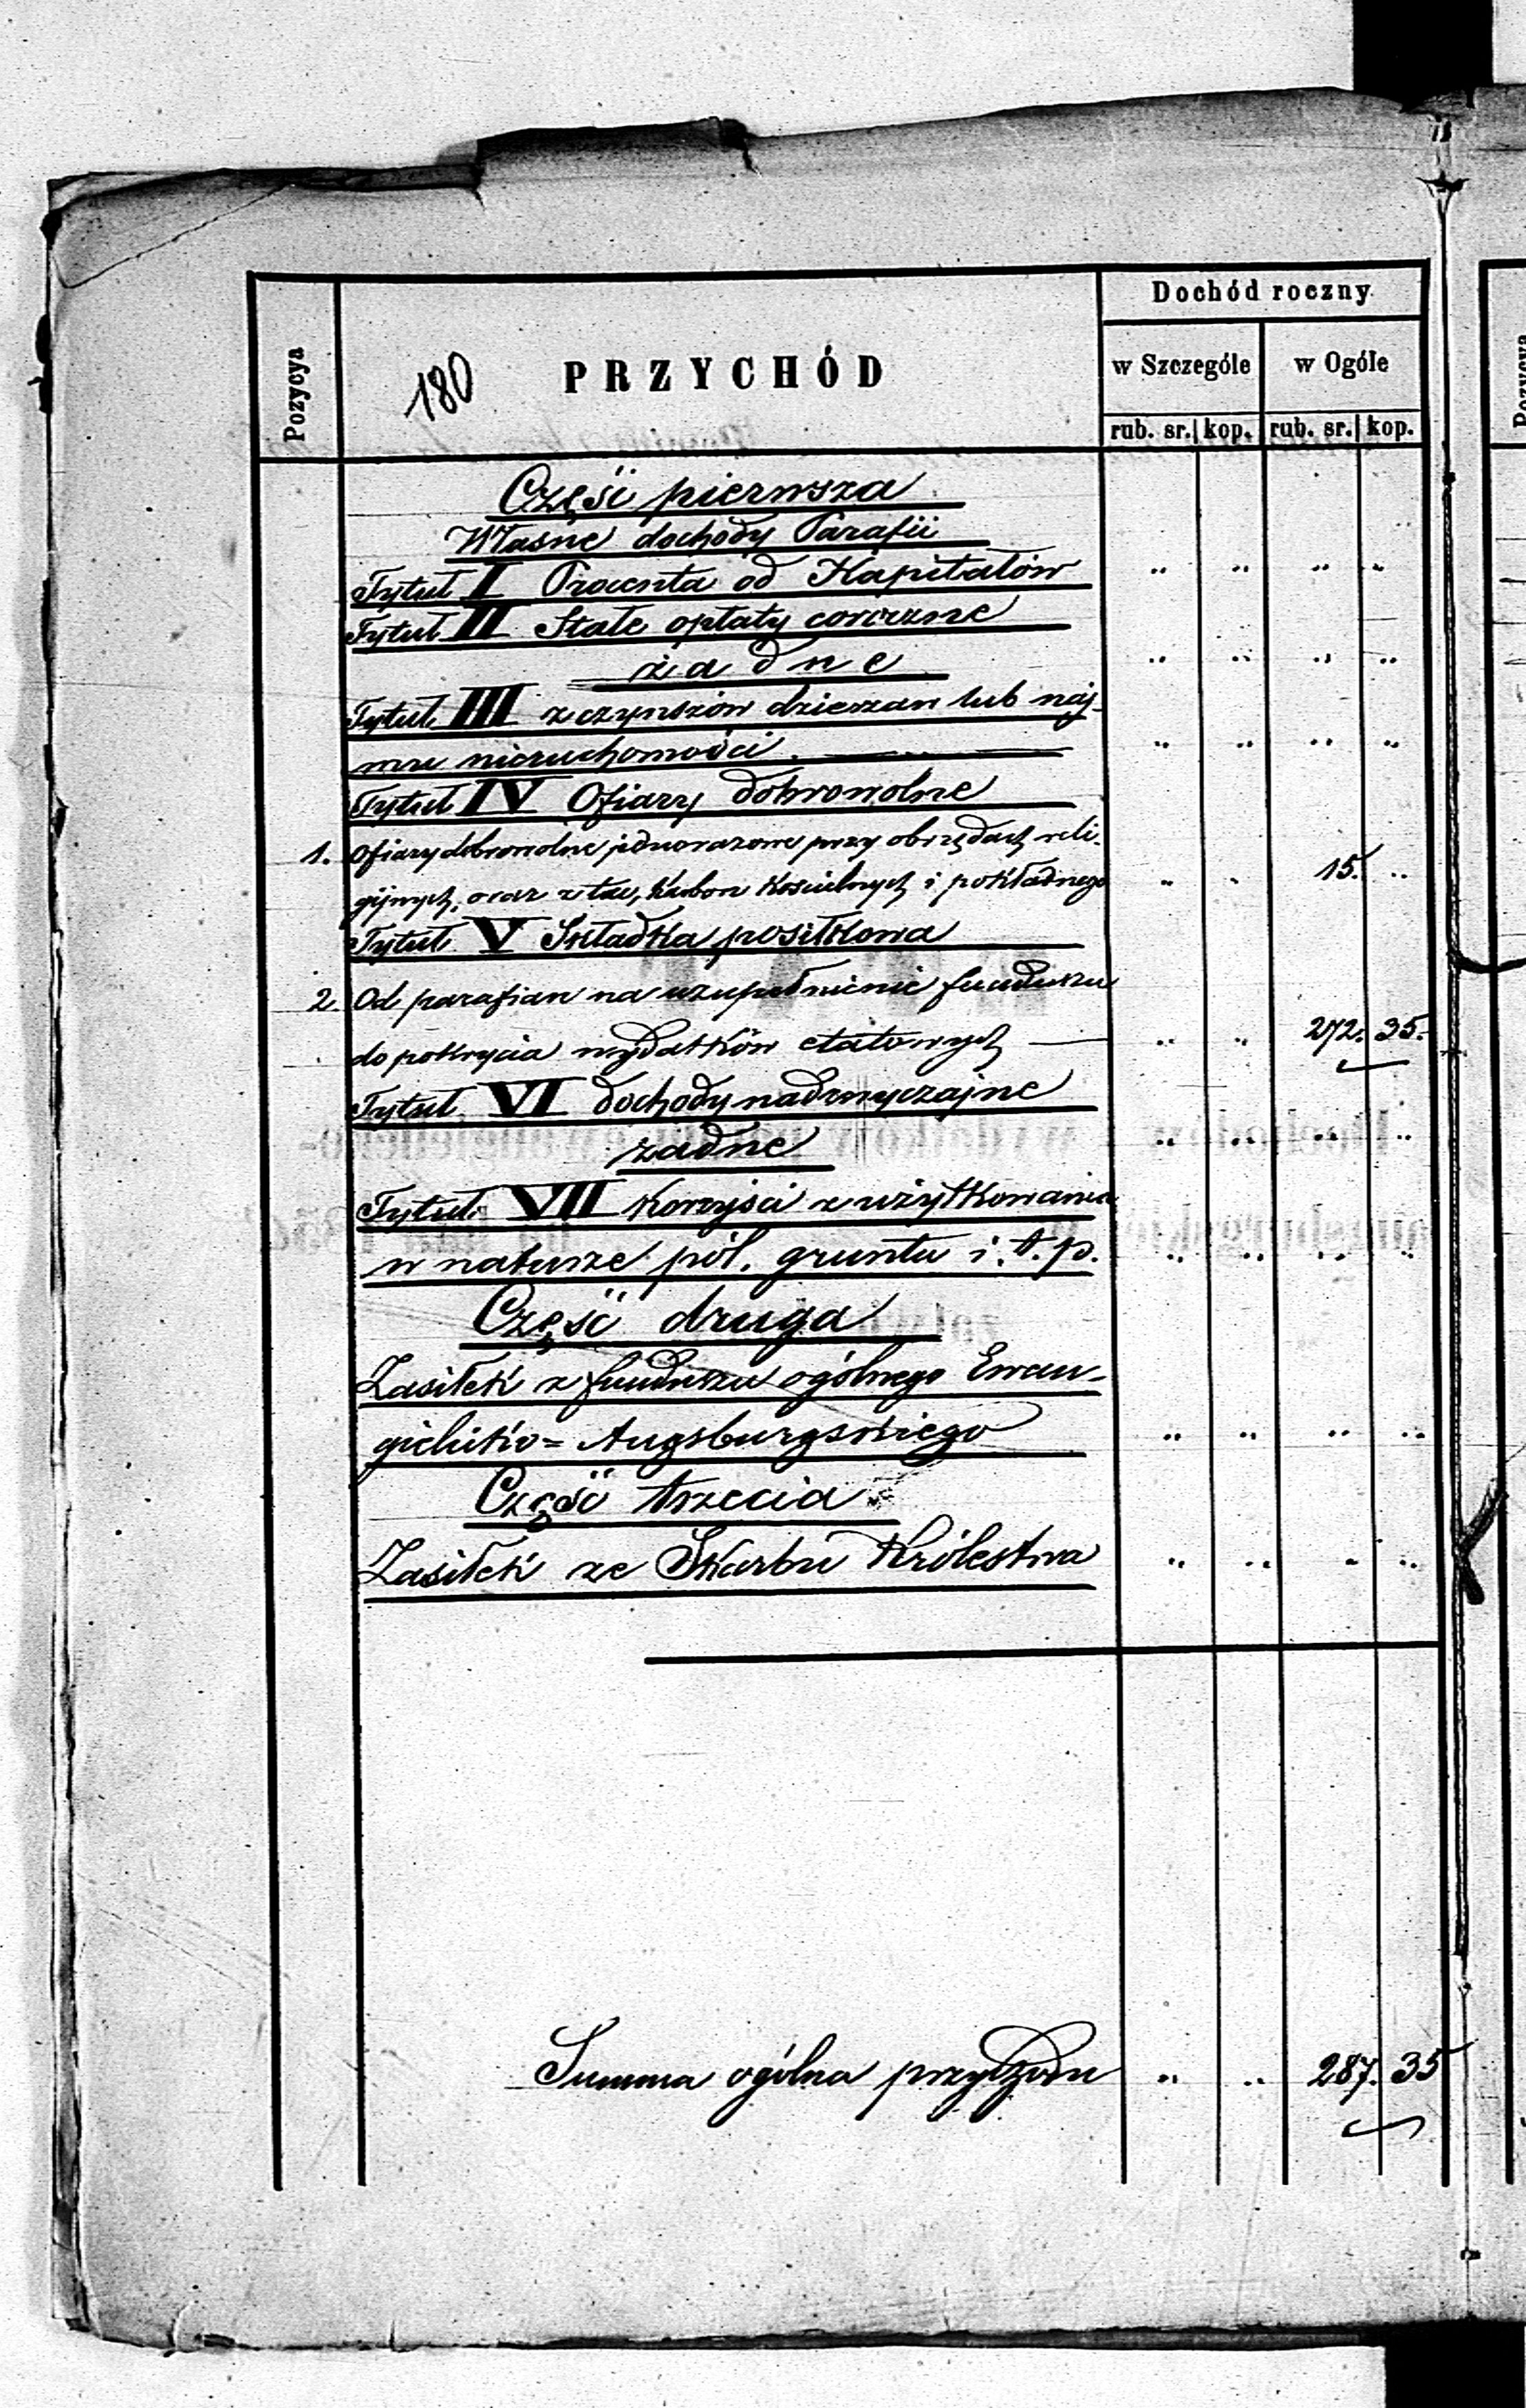 Dochód roczny
Pozycya
180
PRZYCHÓD
w Szczególe
w Ogóle
rub. sr.
kop.
rub. sr.
kop.
Część pierwsza
Własne dochody Parafii
Tytuł I Procenta od Kapitałów " " " "
Tytuł II Stałe opłaty coroczne
żadne " " " "
Tytuł III z czynszów dzierzaw lub naj-
mu nieruchomości. " " " "
Tytuł IV Ofiary dobrowolne
1. Ofiary dobrowolne jednorazowe przy obrzędach reli-
gijnych, oraz z tac, Karbon Kościelnych i pokładnego " " 15. "
Tytuł V Składka posiłkowa
2. Od parafian na uzupełnienie funduszu
do pokrycia wydatków etatowych " " 272. 35.
Tytuł VI dochody nadzwyczajne
żadne " " " "
Tytuł VII Korzyści z użytkowania
w naturze pól, gruntu i.t.p. " " " "
Część druga
Zasiłek z funduszu ogólnego Ewan-
gielicko=Augsburgskiego " " " "
Część trzecia
Zasiłek ze Skarbu Królestwa " " " "
Summa ogólna przychodu " " 287. 35